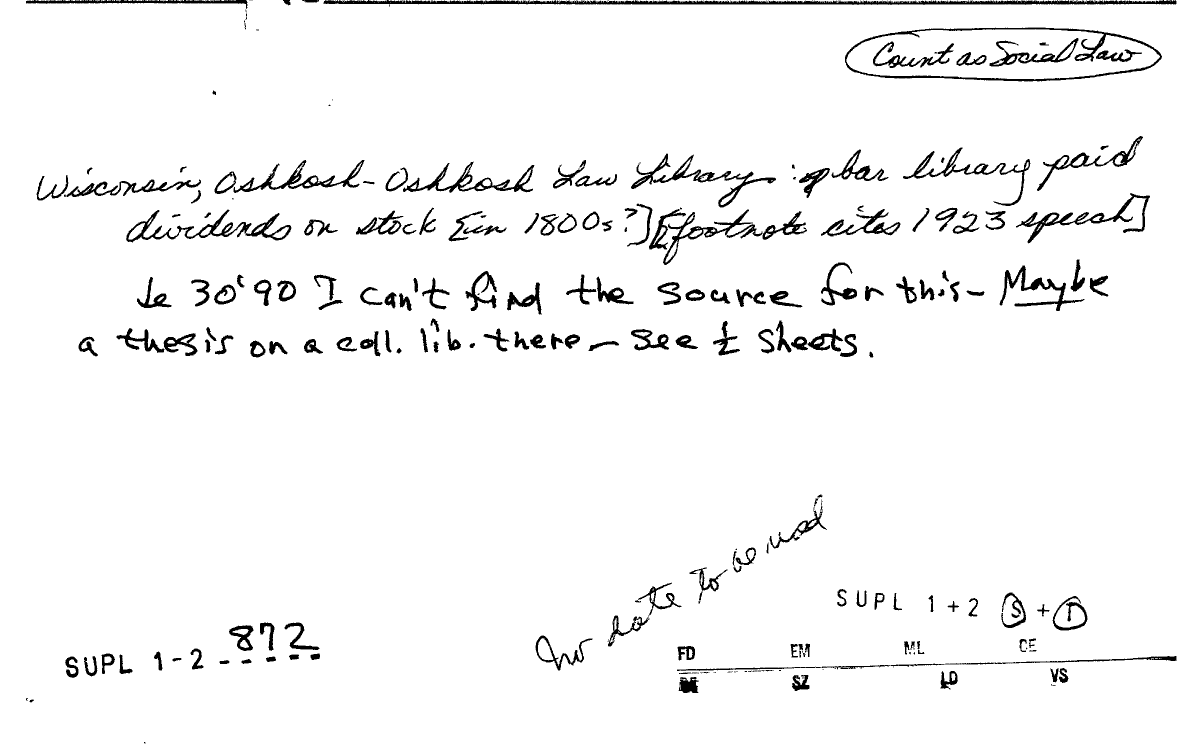 Count as Social Law
Wisconsin, Oshkosh-Oshkosh Law Library: bar library paid
dividends on stock [in 1800s?] [footnote cites 1923 speech]
30'90 I can't find the source for this- Maybe
a thesis on a coll. lib. there- see ½ sheets.
no date to be used
SUPL 1+2 S + I
SUPL 1-2 872
FD EM ML CE
SZ LD VS